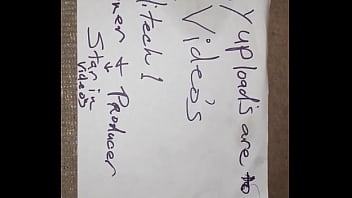 Y uploads are to
Videos
litech1
ner + Producer
Star in
videos